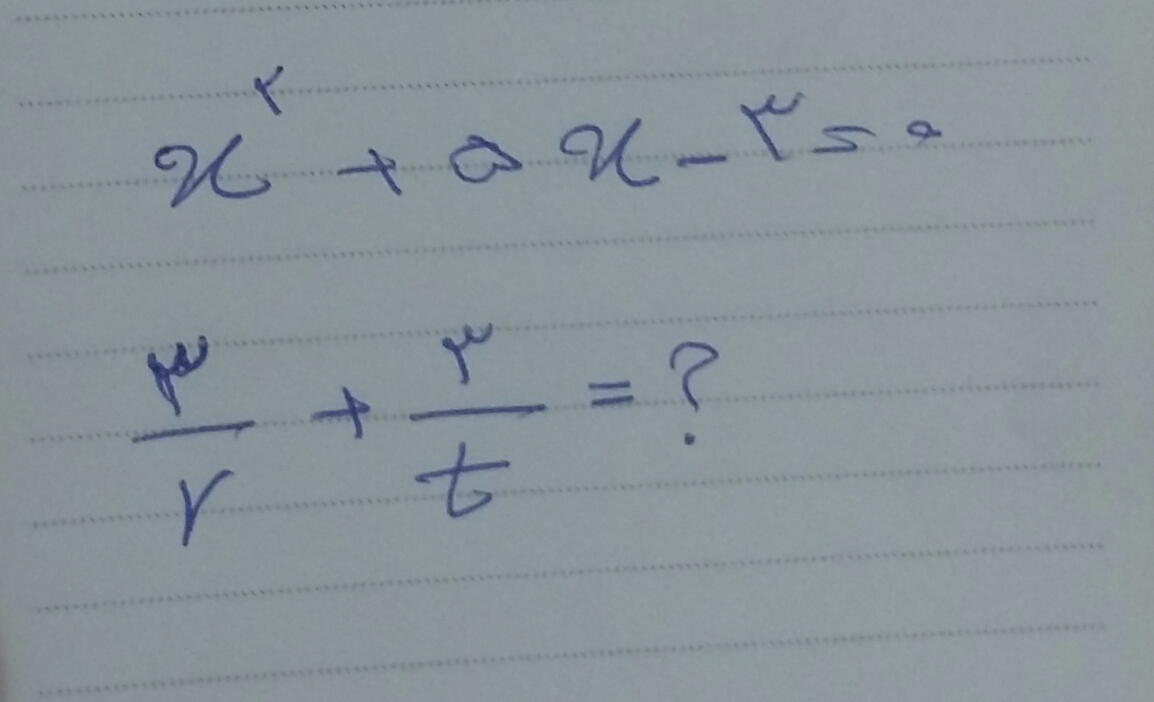 x^۲ + ۵x - ۳ = ۰
۳/r + ۳/t = ?